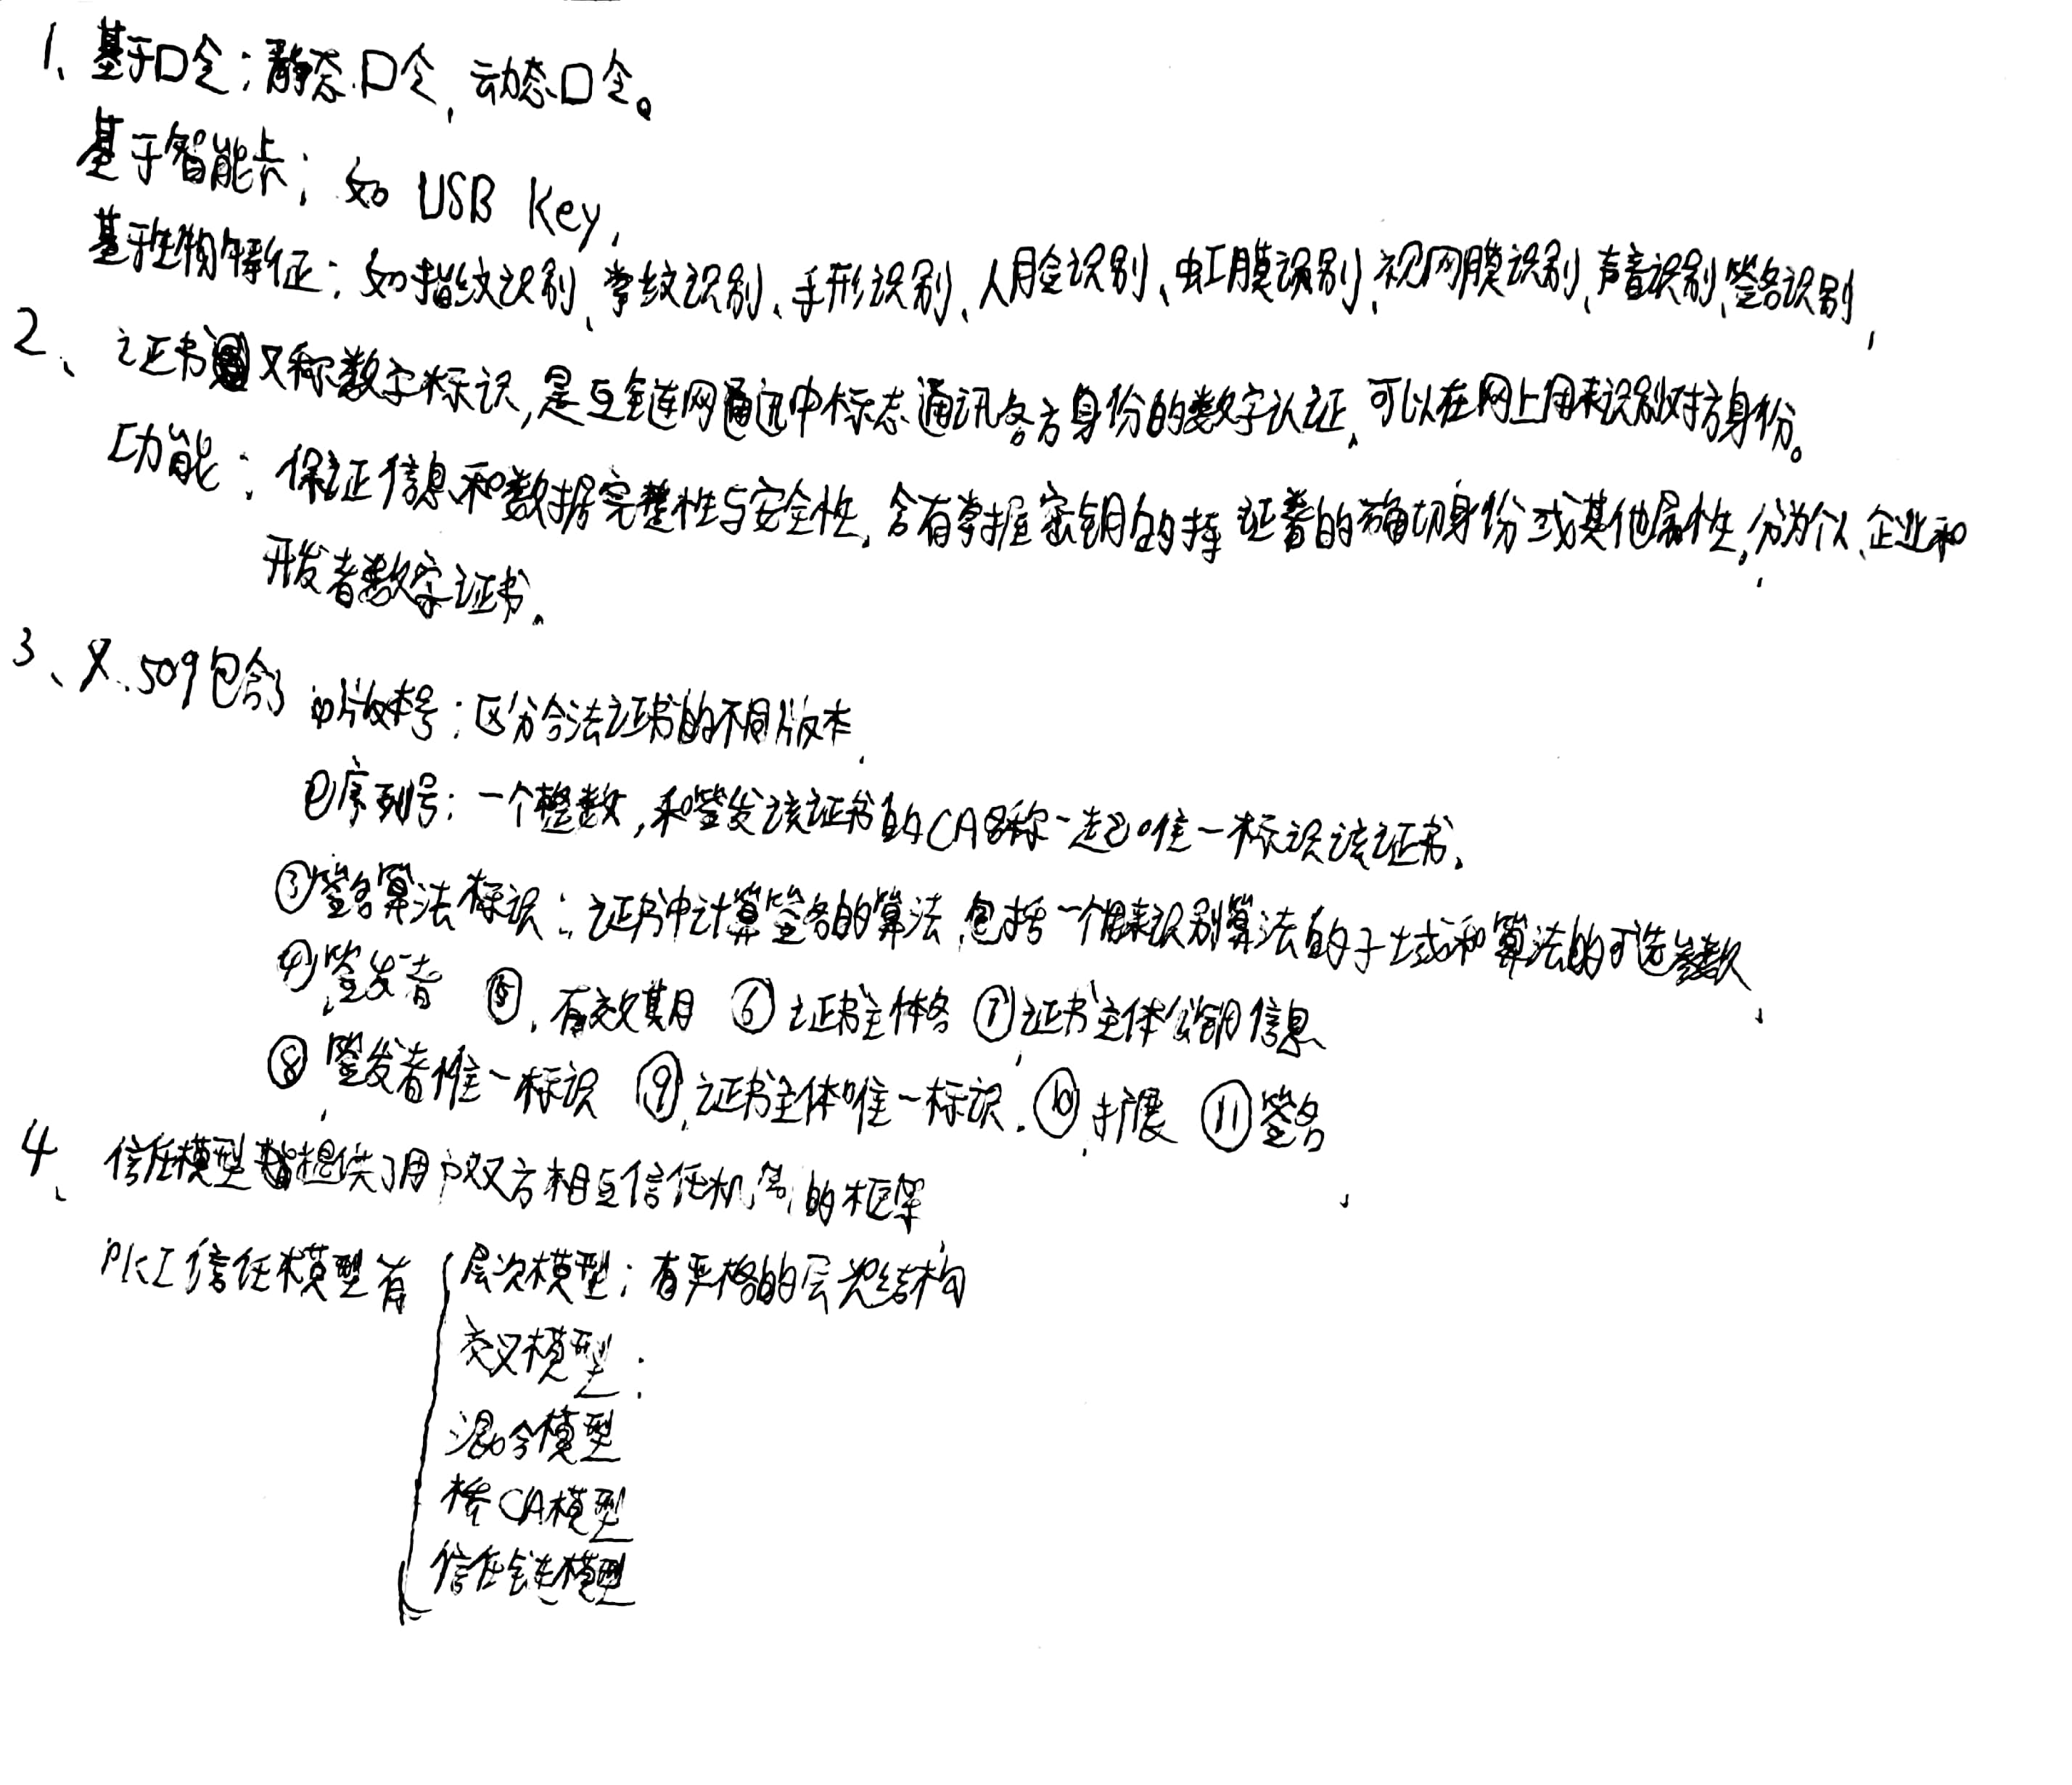 1、基于口令：静态口令，动态口令。
基于智能卡：如 USB Key，
基于生物特征：如指纹识别、掌纹识别、手形识别、人脸识别、虹膜识别、视网膜识别、声音识别、签名识别，
2、证书又称数字标识，是互链网通讯中标志通讯各方身份的数字认证，可以在网上用来识别对方身份。
功能：保证信息和数据完整性与安全性，含有掌握密钥的持证者的确切身份或其他属性，分为个人、企业和
开发者数字证书。
3、X.509包含 ①版本号：区分合法证书的不同版本
②序列号：一个整数，和签发该证书的CA名称一起唯一标识该证书。
③签名算法标识：证书中计算签名的算法，包括一个用来识别算法的子域和算法的可选参数
④签发者 ⑤有效期 ⑥证书主体名 ⑦证书主体公钥信息
⑧签发者惟一标识 ⑨证书主体唯一标识. ⑩扩展 ⑪签名
4、信任模型提供了用户双方相互信任机制的框架
PKI信任模型有 层次模型：有严格的层次结构
交叉模型：
混合模型
桥CA模型
信任链模型